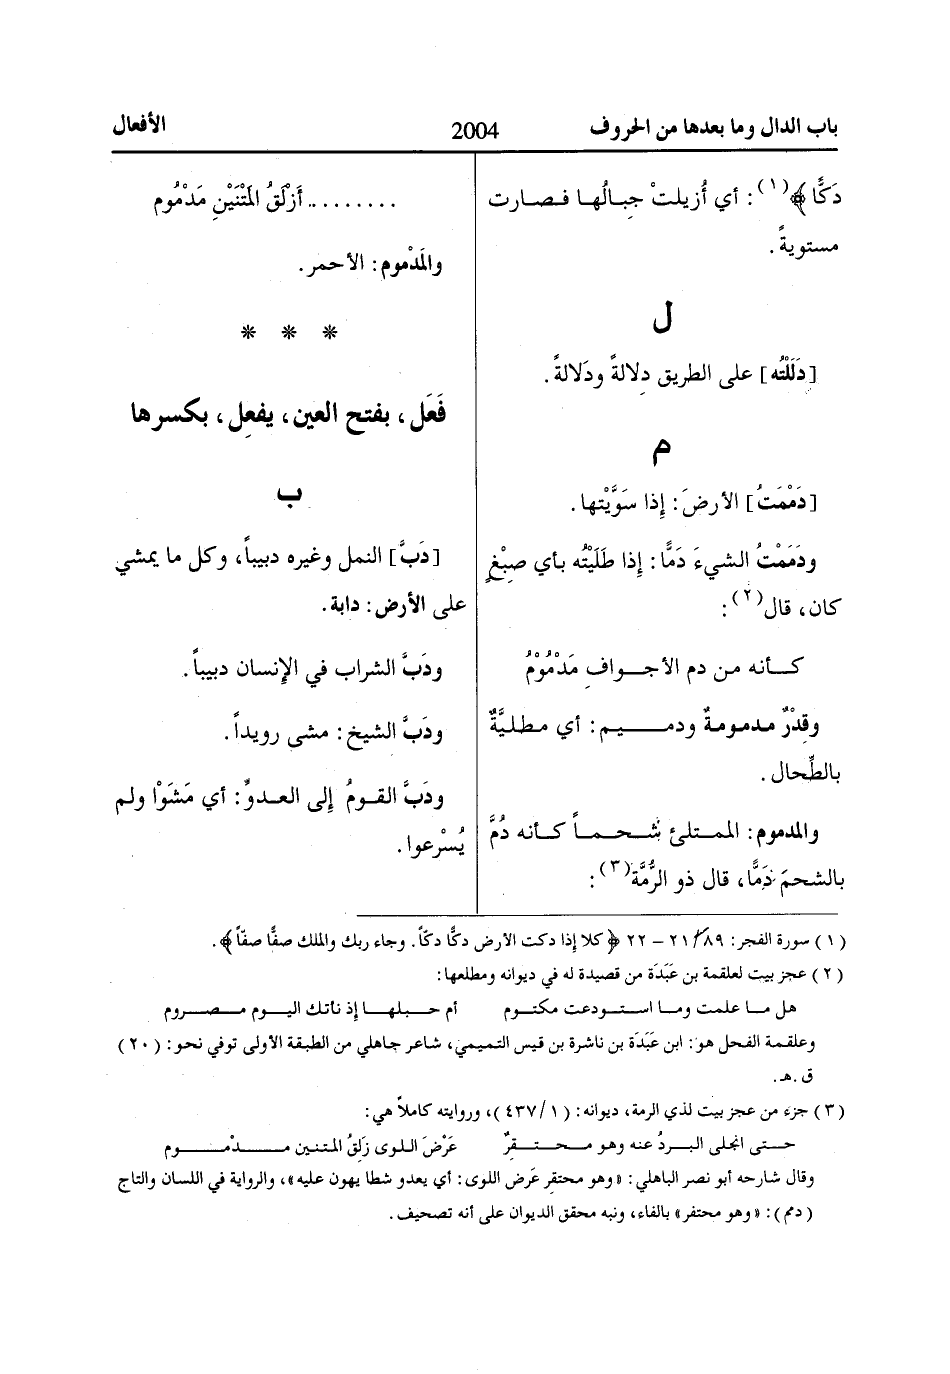 باب الدال وما بعدها من الحروف 2004 الأفعال
دَكًّا﴾(١): أي أُزيلتْ جبالُها فصارت
مستويةً.
ل
[دَلَلْتُه] على الطريق دِلالةً ودَلالةً.
م
[دَمَمْتُ] الأرضَ: إذا سَوَّيْتها.
ودَمَمْتُ الشيءَ دَمًّا: إذا طَلَيْتُه بأي صِبْغٍ
كان، قال(٢):
كأنه من دم الأجوافِ مَدْمُوْمُ
وقِدْرٌ مدمومةٌ ودميم: أي مطليَّةٌ
بالطِّحال.
والمدموم: الممتلئ شُحماً كأنه دُمَّ
بالشحمَ دَمًّا، قال ذو الرُّمَّة(٣):
......... أزْلَقُ المَتْنَيْنِ مَدْمُوم
والمَدْموم: الأحمر.
* * *
فَعَل، بفتح العين، يفعِل، بكسرها
ب
[دَبَّ] النمل وغيره دبيباً، وكل ما يمشي
على الأرض: دابة.
ودَبَّ الشراب في الإنسان دبيباً.
ودَبَّ الشيخ: مشى رويداً.
ودَبَّ القومُ إلى العدوِّ: أي مَشَوْا ولم
يُسْرعوا.
(١) سورة الفجر: ٨٩/ ٢١ – ٢٢ ﴿كلا إذا دكت الأرض دكًّا دكّاً. وجاء ربك والملك صفًّا صفّاً﴾.
(٢) عجز بيت لعلقمة بن عَبَدَة من قصيدة له في ديوانه ومطلعها:
هل ما علمت وما استودعت مكتوم أم حبلها إذ نأتك اليوم مصروم
وعلقمة الفحل هو: ابن عَبَدَة بن ناشرة بن قيس التميمي، شاعر جاهلي من الطبقة الأولى توفي نحو: (٢٠)
ق.هـ.
(٣) جزء من عجز بيت لذي الرمة، ديوانه: (١/ ٤٣٧)، وروايته كاملاً هي:
حتى انجلى البردُ عنه وهو محتقرٌ عَرْضَ اللوى زلِقُ المتنين مدْموم
وقال شارحه أبو نصر الباهلي: «وهو محتقر عَرض اللوى: أي يعدو شطا يهون عليه»، والرواية في اللسان والتاج
(دمم): «وهو محتفر» بالفاء، ونبه محقق الديوان على أنه تصحيف.